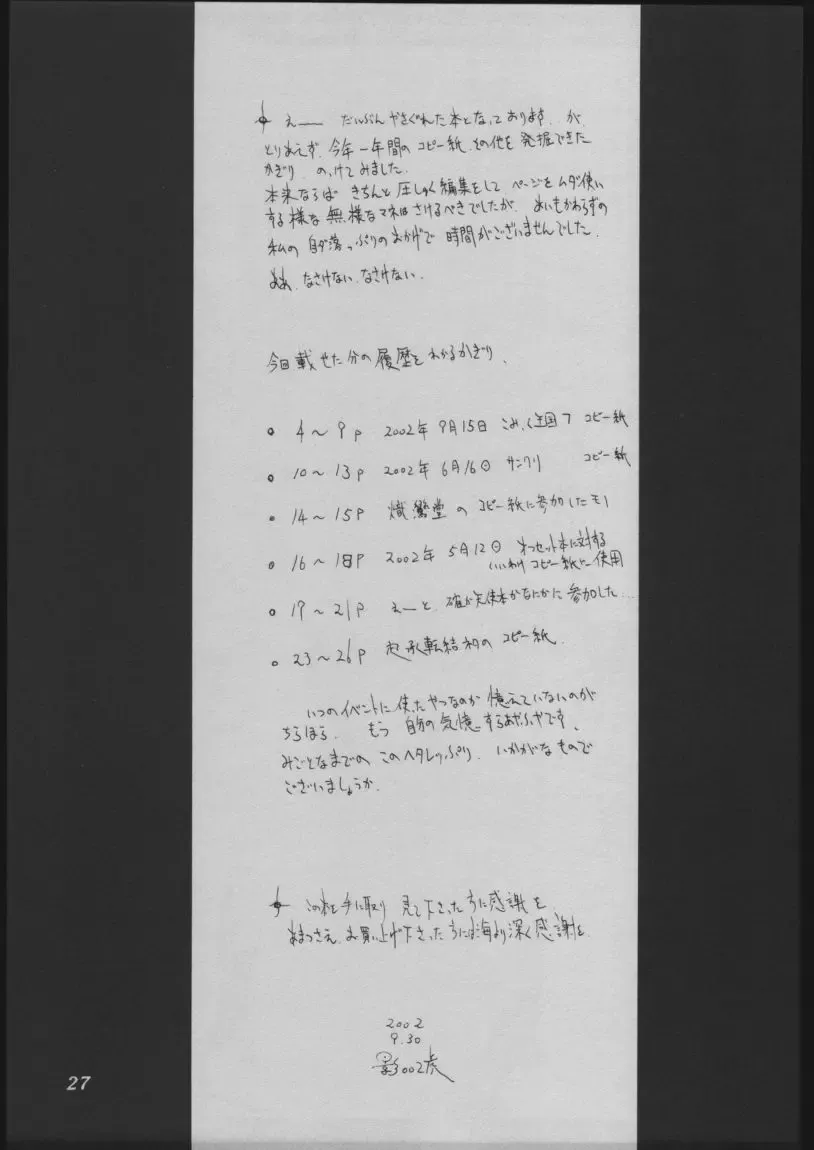 えー だいぶんやさぐれた本となっております。が、
とりあえず、今年一年間のコピー紙、その他を発掘できた
かぎり のっけてみました。
本来ならば きちんと圧しゅく編集をして ページをムダ使い
する様な無様なマネはさけるべきでしたが、あいもかわらずの
私の自ダ落っぷりのおかげで時間がございませんでした。
ああ、なさけない、なさけない。
今回載せた分の履歴をわかるかぎり、
○ 4〜9p 2002年9月15日 こみっく コピー紙
○ 10〜13p 2002年6月16日 サンクリ コピー紙
○ 14〜15p 熾鸞堂のコピー紙に参加したモノ
○ 16〜18p 2002年5月12日 オフセット本に対する
いいわけコピー紙に使用
○ 19〜21p えーと、確か天使本かなにかに参加した…
○ 23〜26p 起承転結 のコピー紙
いつのイベントに使ったやつなのか憶えていないのが
ちらほら、もう自分の気憶するあやふやです。
みごとなまでのこのヘタレっぷり、いかがなもので
ございましょうか。
この本を手に取り 見て下さった方に感謝を
あまつさえ、お買い上げ下さった方には海より深く感謝を
2002
9.30
影002虎
27